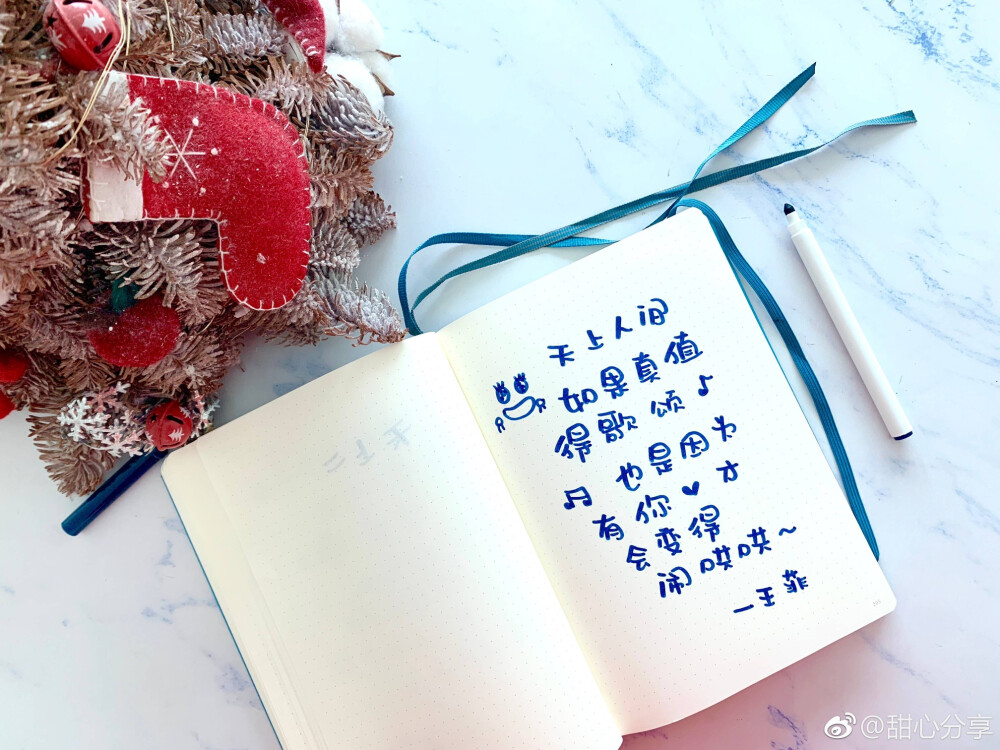 天上人间
如果真值
得歌颂♪
也是因为
♫有你♥才
会变得
闹哄哄~
—王菲
天上
@甜心分享